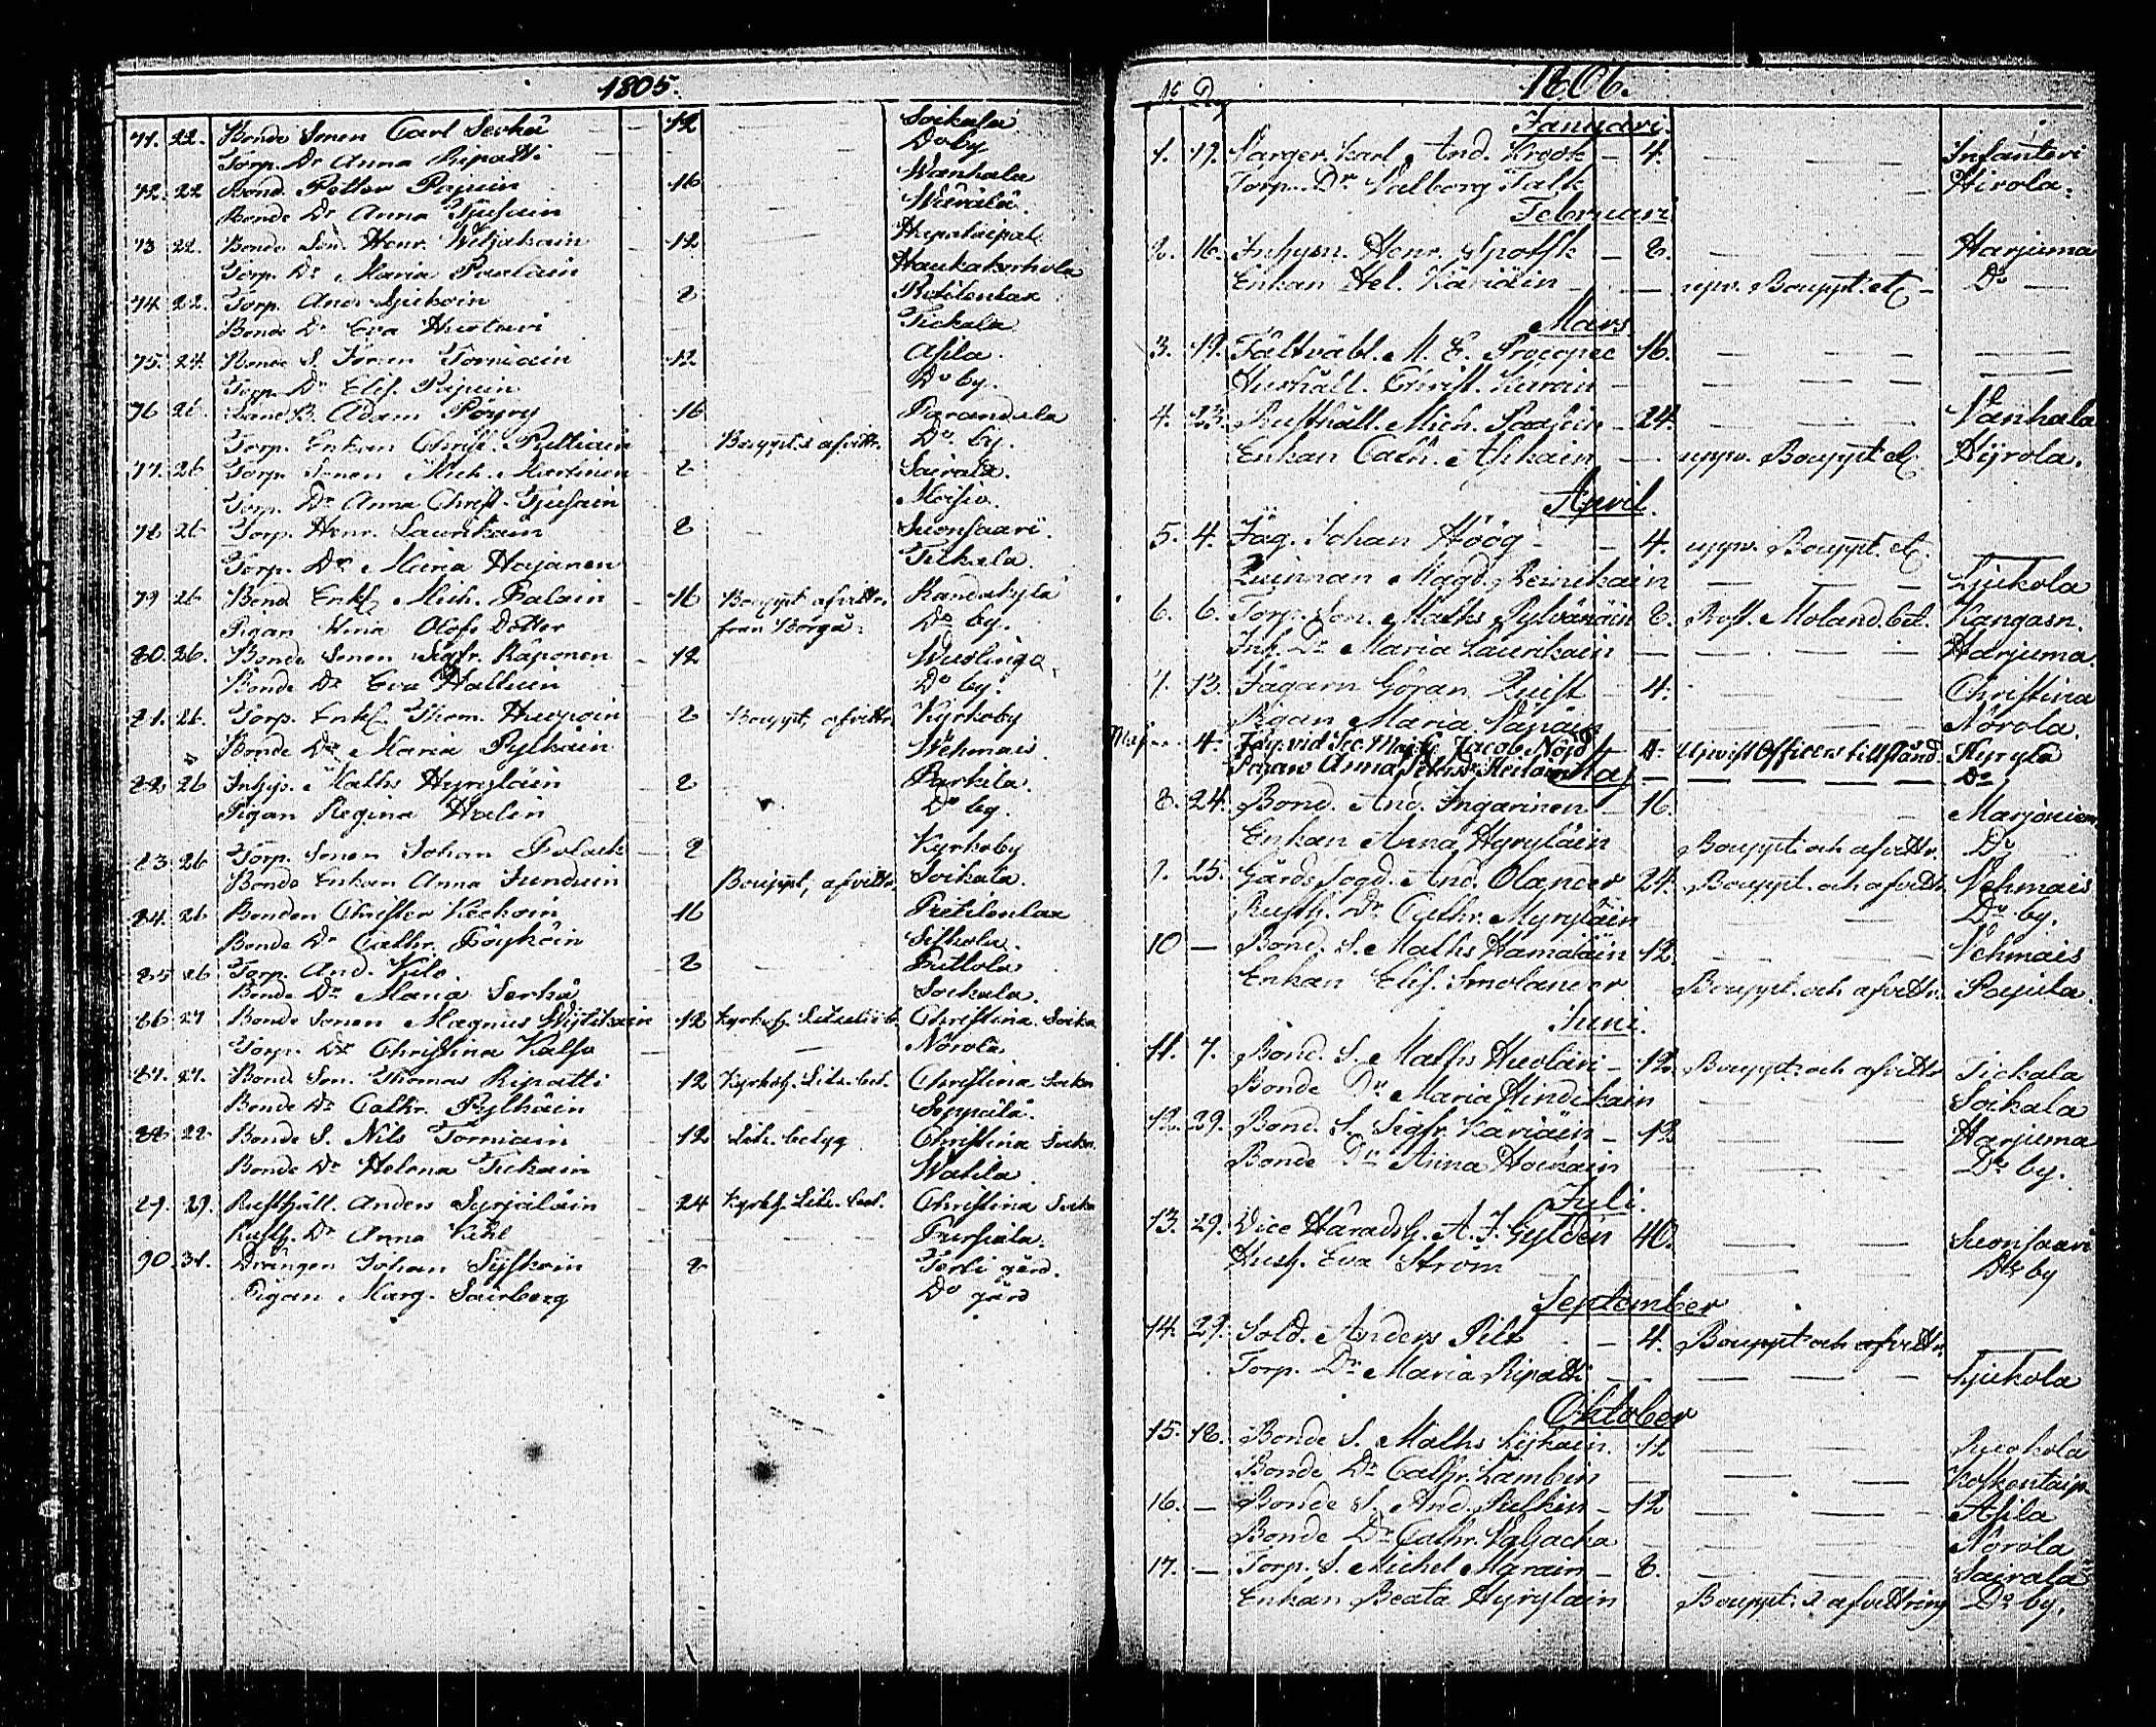 1805.
71. 22. Bonde Sonen Carl Serkä — 12 — Soikala
Torp. Dr Anna Ripatti — Do by
72. 22 Bond. Petter Papuin — 16 — Wanhala
Bonde Dr Anna Tjusain — Wärälä.
73 22. Bonde Son. Henr. Witjakain — 12 —
Torp. Dr Maria Pavlain — Haukakorhola
74 22. Torp. And. Sjukoin 8
Bonde Dr Eva Huolari Tickala
75. 24. Bonde S. Jöran Torniain 12 Asila.
Torp. Dr Elis. Pipuin Do by.
76 26. Land B. Adam Pöyry 16 Parandala
Torp. Enkan Christ. Pulliain Bouppt. & afvittr. Do by.
77. 26 Torp. Sonen Mich. Martinen 8 Sairala.
Torp. Dr Anna Christ. Tjusain Moisio.
78 26 Torp. Henr. Laurikain 8 — Suonsaari.
Torp. Dr Maria Hajanen Tikkala.
79 26 Bond. Enkl. Mich. Palain — 16 Bouppt afvittr. Kandakylä
Pigan Stina Olofs Dotter från Borgå. Do by.
80. 26. Bonde Sonen Sigfr. Käponen — 12
Bonde Dr Eva Halluin Do by.
81. 26. Torp. Enkl. Thom. Huopoin — 8 Bouppt, afvittr. Kyrkoby
Bonde Dr Maria Pylkäin Wehmais.
82 26 Inhys. Maths Hyryläin 8 Parkila.
Pigan Regina Halin Do by.
83. 26 Torp. Sonen Johan Polack — 8 Kyrkoby
Bonde Enkan Anna Junduin Bouppt, afvittr. Soikala.
84. 26 Bonden Christer Keckoin 16
Bonde Dr Cathr. Pöyhöin
85 26 Torp. And. Kilo. 8 — Puttola
Bonde Dr Maria Serkä Soikala.
86 27 Bonde Sonen Magnus Wijtikain 12 Christina Socka
Torp. Dr Christina Kalso — Norola.
87. 27. Bond Son. Thomas Ripatti 12 Kyrkoh. Lits. bet. Christina Sockn
Bonde Dr Cathr. Pylkäin Seppälä.
88 28 Bonde S. Nils Torniain 12 Christina Sockn.
Bonde Dr Helena Tickain Watila.
89. 29. Rusthåll. Anders Syrjäläin 24 Kyrkoh. Lits. bet. Christina Sockn
Rusth. Dr Anna Kihl Pursiala.
90. 31. Drängen Johan Sijskoin 8 gård.
Pigan Marg. Do gård
1806.
Januari.
1. 19. And. Krook — 4. — Infanteri
Torp. Dr Valborg Falk — Hirola.
Februari
2. 16. Inhysn. Henr. Spoffk — 8. — Harjuma
Enkan Hel. Käriäin — upv. Bouppt. etc — Do —
Mars.
3. 19. Fältväbl. M. E. Procopæe 16. —
Hushåll. Christ. Kurain —
4. 23. Rusthåll. Mich. Paasoin — 24. — Vanhala
Enkan Cath. Asikain — uppv. Bouppt etc. Hyrola.
April.
5. 4. Jäg. Johan Höög — 4. uppv. Bouppt. etc. —
Quinnan Magd. Reinikain — Sjukola
6. 6. Torp. Son. Maths Pylvänäin 8. Kangasn.
Inh. Dr Maria Laurikain — Harjuma.
7. 13. Jägarn Göran Quist — 4. — Christina
Pigan Maria Vanain — Norola.
4. Jäg. vid Jacob Nöjd 4. Upvist Officers tillstånd. Hyryla
Pigan Anna — Do
Maj
8. 24. Bond. And. Ingarinen 16. —
Enkan Anna Hyryläin Bouppt. och afvittr. Do
9. 25. Gårds Fogd. And. Olander 24. Bouppt. och afvittr. Vehmais
Rusth. Dr Cathr. Myryläin — Do by.
10 — Bond. S. Maths Hamaläin 12. — Vehmais
Enkan Elis. Smolander Bouppt. och afvittr. Pajula.
Juni.
11. 7. Bond. S. Maths Huolari — 12. Bouppt. och afvittr Tickala
Bonde Dr Maria Hindikain — Soikala
12. 29. Bond. S. Sigfr. Käriäin — 12 — Harjuma
Bonde Dr Anna Hockain — Do by.
Juli.
13. 29. Vice Häradsh. A. J. Gyldén 40. — Suonsaari
Hush. Eva Ström — Do by
September
14. 29. Sold. Anders Pilt — 4. Bouppt. och afvittr. —
Torp. Dr Maria Ripatti — Sjukola
Oktober
15. 18. Bonde S. Maths Lyhain. 12 — Ruokola
Bonde Dr Cathr. Lambin —
16. — Bonde S. And. Puskin — 12 — Asila
Bonde Dr Cathr. Valjacka — Norola
17. — Torp. S. Michel Marain — 8. — Sairala
Enkan Beata Hyrylain Bouppt. & afvittring Do by.